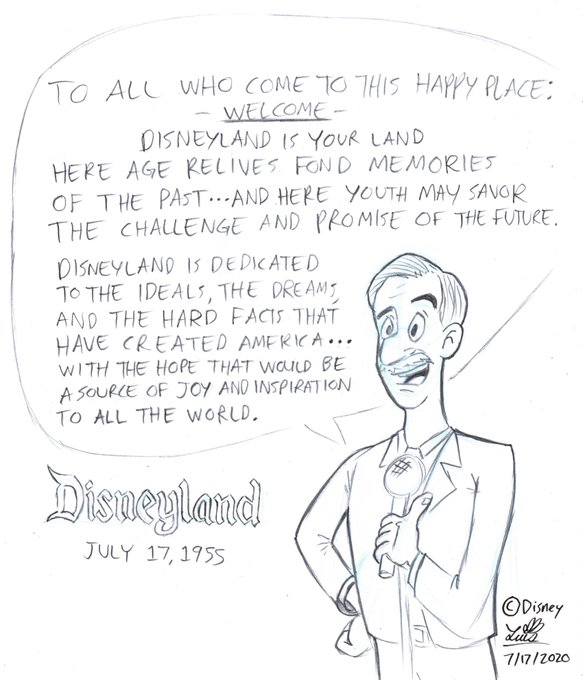 TO ALL WHO COME TO THIS HAPPY PLACE:
- WELCOME -
DISNEYLAND IS YOUR LAND
HERE AGE RELIVES FOND MEMORIES
OF THE PAST...AND HERE YOUTH MAY SAVOR
THE CHALLENGE AND PROMISE OF THE FUTURE.
DISNEYLAND IS DEDICATED
TO THE IDEALS, THE DREAMS,
AND THE HARD FACTS THAT
HAVE CREATED AMERICA...
WITH THE HOPE THAT WOULD BE
A SOURCE OF JOY AND INSPIRATION
TO ALL THE WORLD.
Disneyland
JULY 17, 1955
©Disney
7/17/2020